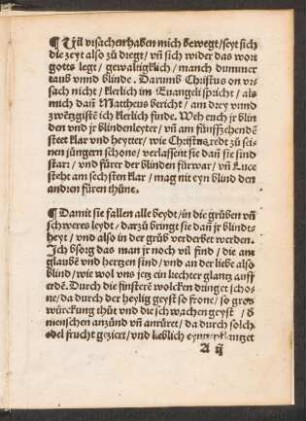 ¶ Vil vrsachen haben mich bewegt/seyt sich
die zeyt also zů tregt/ vñ sich wider das wort
gottes legt/ gewaltigklich/ manch dummer
taub vnnd blinde. Darumb Christus on vr⸗
sach nicht/ klerlich im Euangeli spricht/ als
mich dañ Mattheus bericht/ am drey vnnd
zwentzgistē ich klerlich finde. Weh euch jr blin
den vnd jr blindenleyter/ vñ am fünffzehendē
steet klar vnd heytter/ wie Christus redt zů sei⸗
nen jüngern schone/ verlassent sie dañ sie sind
starr/ vnd fürer der blinden fürwar/ vñ Luce
steht am sechsten klar/ mag mit eyn blind den
andren füren thüne.
¶ Damit sie fallen alle beydt/in die grůben vñ
schweres leydt/ darzů bringt sie dañ jr blindt⸗
heyt/ vnd also in der grůb verderbet werden.
Ich bsorg das man jr noch vil find/ die am
glaubē vnd hertzen sind/ vnd an der liebe also
blind/ wie wol vns jetz ein liechter glantz auff
erdē. Durch die finsterē wolcken dringet scho⸗
ne/ da durch der heylig geyst so frone/ so gros
würckung thůt vnd die sch wachen geyst/ d
menschen anzünd vñ anrüret/ da durch solch
edel frucht geziert/ vnd lieblich eynn pflantzet
A ij